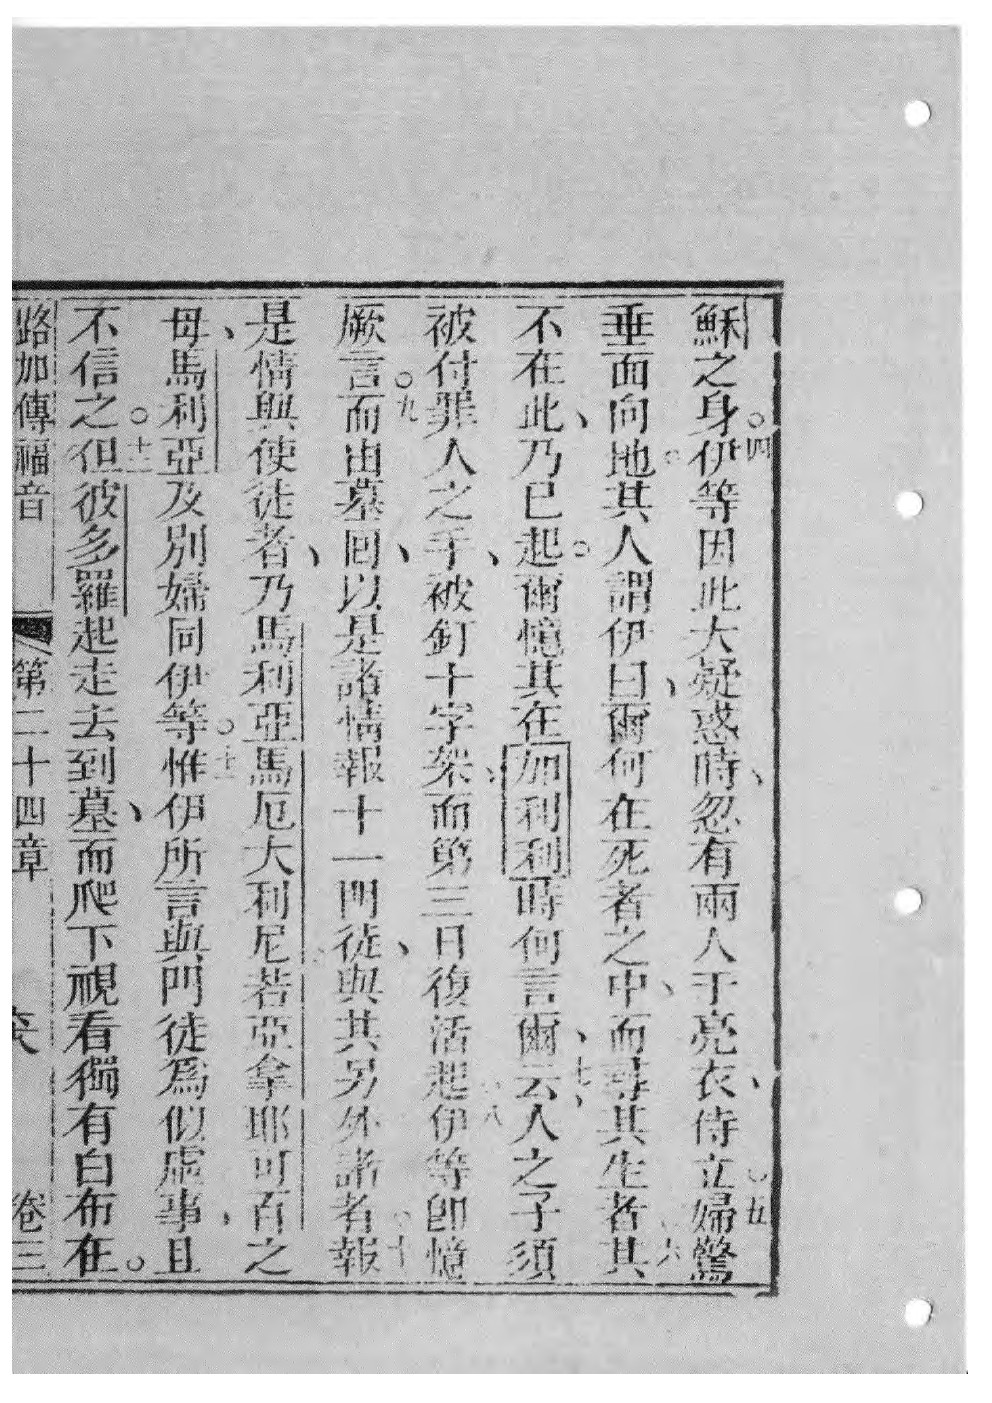 穌之身○四伊等因此大疑惑時、忽有兩人于亮衣、侍立○五婦驚
垂面向地○其人謂伊曰、爾何在死者之中、而尋其生者○六其
不在此、乃已起○爾憶其在加利利時何言爾、七云、人之子須
被付罪人之手、被釘十字架、而第三日復活起○八伊等即憶
厥言○九而由墓回、以是諸情報十一門徒、與其另外諸者○十報
是情與使徒者、乃馬利亞馬厄大利尼若亞拿耶可百之
母、馬利亞及別婦同伊等○十一惟伊所言與門徒爲似虛事、且
不信之○十二但彼多羅起走去到墓、而爬下視看獨有白布在○
路加傳福音 第二十四章 卷三